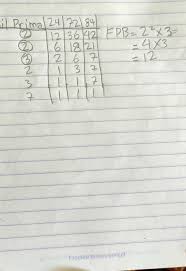 il Prima 24 72 84
2 12 36 42 FPB = 2² × 3 =
2 6 18 21 = 4 × 3
3 2 6 7 = 12
2 1 3 7
3 1 1 7
7 1 1 1